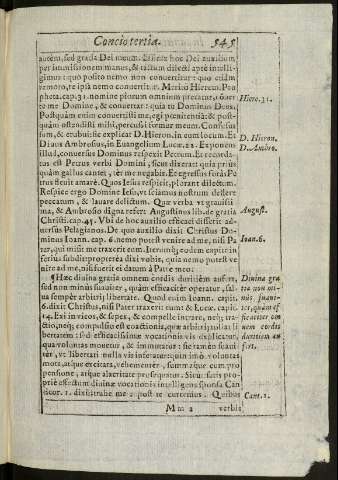 Concio tertia. 545
autem, sed gratia Dei mecum. Efficax hoc Dei auxilium,
per immissionem manus, & tactum dilecti aptè intelli-
gimus: quo posito nemo non conuertitur: quo etiam
remoto, re ipsa nemo conuertitur. Merito Hierem. Pro-
pheta. cap. 31. nomine plorum omnium precatur,
te me Domine, & conuertar: quia tu Dominus Deus.
Postquam enim conuertisti me, egi pœnitentiā: & post-
quam ostendisti mihi, percussi femur meum. Confusus
sum, & erubui: sic explicat D. Hieron. in eum locum. Et
Diuus Ambrosius, in Euangelium Lucæ. 22. Exponens
illud, conuersus Dominus respexit Petrum. Et recorda-
tus est Petrus verbi Domini, sicut dixerat: quia prius-
quàm gallus cantet, ter me negabis. Et egressus foràs Pe
trus fleuit amarè. Quos Iesus respicit, plorant dilectum.
Respice ergo Domine Iesu, vt sciamus nostrum deflere
peccatum, & lauare delictum. Quæ verba vt grauissi-
ma, & Ambrosio digna refert Augustinus lib. de gratia
Christi. cap. 45. Vbi de hoc auxilio efficaci disserit ad-
uersus Pelagianos. De quo auxilio dixit Christus Do-
minus Ioann. cap. 6. nemo potest venire ad me, nisi Pa-
ter, qui misit me traxerit eum. Iterumq́; eodem capite in
ferius subdit: propterea dixi vobis, quia nemo potest ve
nire ad me, nisi fuerit ei datum à Patre meo.
¶ Hæc diuina gratia omnem cordis duritiem aufert,
sed non minùs suauiter, quàm efficaciter operatur, sal-
ua semper arbitrij libertate. Quod enim Ioann. capit.
6. dixit Christus, nisi Pater traxerit eum: & Lucæ. capit.
14. Exi in vicos, & sepes, & compelle intrare, neq́; trac-
tio, neq́; compulsio est coactionis, quæ arbitrij tollat li
bertatem: sed efficacissimæ vocationis vis explicatur,
qua voluntas mouetur, & immutatur: sic tamen suaui-
ter, vt libertati nulla vis inferatur: quin imò voluntas
mota, atque excitata, vehementer, summaque cum pro
pensione, atque alacritate prosequatur. Sicut satis pro-
priè affectum diuinæ vocationis intelligens sponsa Can
ticor. 1. dixit: trahe me: post te curremus. Quibus
Mm 2 verbis
Hiere. 31.
D. Hieron.
D. Ambro.
August.
Ioan. 6.
Diuina gra
tia non mi-
nùs suaui-
ter, quàm ef
ficaciter om
nem cordis
duritiem au
fert.
Cant. 1.